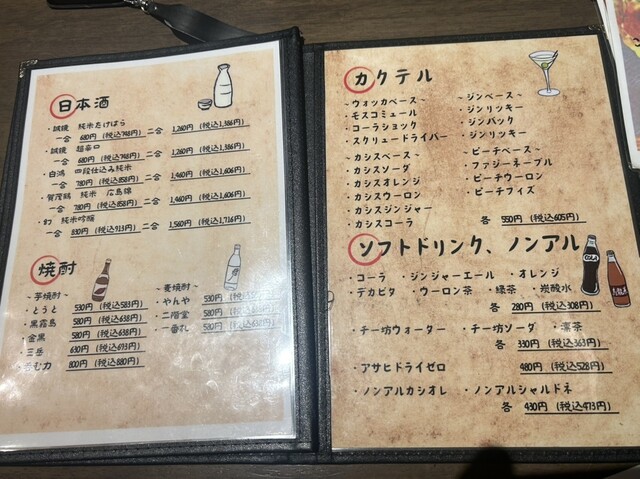 日本酒
・誠鏡 純米たけはら
一合 680円 (税込748円) 二合 1,260円 (税込1,386円)
・誠鏡 超辛口
一合 680円 (税込748円) 二合 1,260円 (税込1,386円)
・白鴻 四段仕込み純米
一合 780円 (税込858円) 二合 1,460円 (税込1,606円)
・賀茂鶴 純米 広島錦
一合 780円 (税込858円) 二合 1,460円 (税込1,606円)
・幻 純米吟醸
一合 830円 (税込913円) 二合 1,560円 (税込1,716円)
焼酎
~芋焼酎~
・とうと 530円 (税込583円)
・黒霧島 580円 (税込638円)
・金黒 580円 (税込638円)
・三岳 630円 (税込693円)
む力 800円 (税込880円)
~麦焼酎~
・やんや 530円
・二階堂 580円
・一番札 580円
カクテル
~ウォッカベース~
・モスコミュール
・コーラショック
・スクリュードライバー
~カシスベース~
・カシスソーダ
・カシスオレンジ
・カシスウーロン
・カシスジンジャー
・カシスコーラ
~ジンベース~
・ジンリッキー
・ジンバック
・ジンリッキー
~ピーチベース~
・ファジーネーブル
・ピーチウーロン
・ピーチフィズ
各 550円 (税込605円)
ソフトドリンク、ノンアル
・コーラ ・ジンジャーエール ・オレンジ
・デカビタ ・ウーロン茶 ・緑茶 ・炭酸水
各 280円 (税込308円)
・チー坊ウォーター ・チー坊ソーダ ・凛茶
各 330円 (税込363円)
・アサヒドライゼロ 480円 (税込528円)
・ノンアルカシオレ ・ノンアルシャルドネ
各 430円 (税込473円)